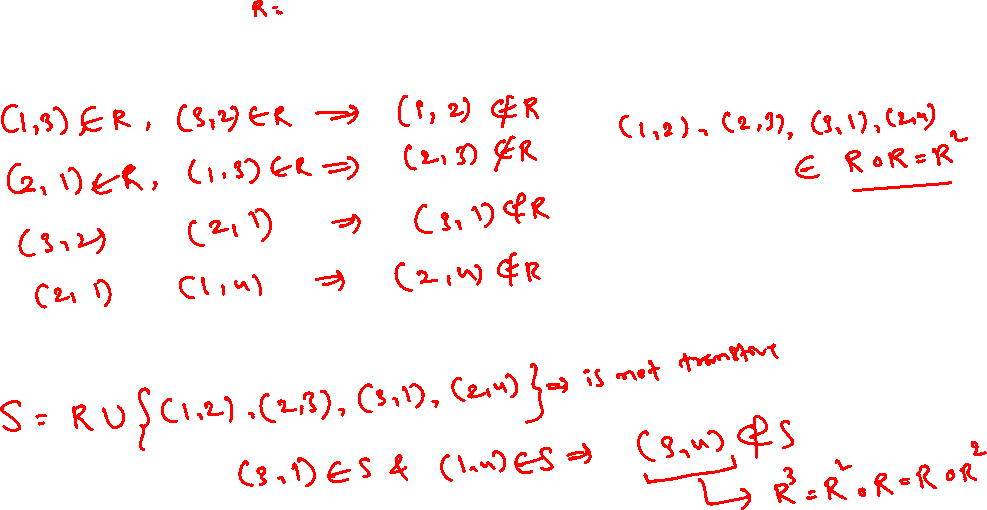 R =
(1,3) ∈ R, (3,2) ∈ R ⇒ (1, 2) ∉ R
(2, 1) ∈ R, (1,3) ∈ R ⇒ (2, 3) ∉ R
(3,2) (2,1) ⇒ (3, 1) ∉ R
(2, 1) (1,4) ⇒ (2,4) ∉ R
(1,2), (2,3), (3,1), (2,4)
∈ R∘R = R²
S = R ∪ {(1,2), (2,3), (3,1), (2,4)} ⇒ is not transitive
(3,1) ∈ S & (1,4) ∈ S ⇒ (3,4) ∉ S
→ R³ = R²∘R = R∘R²